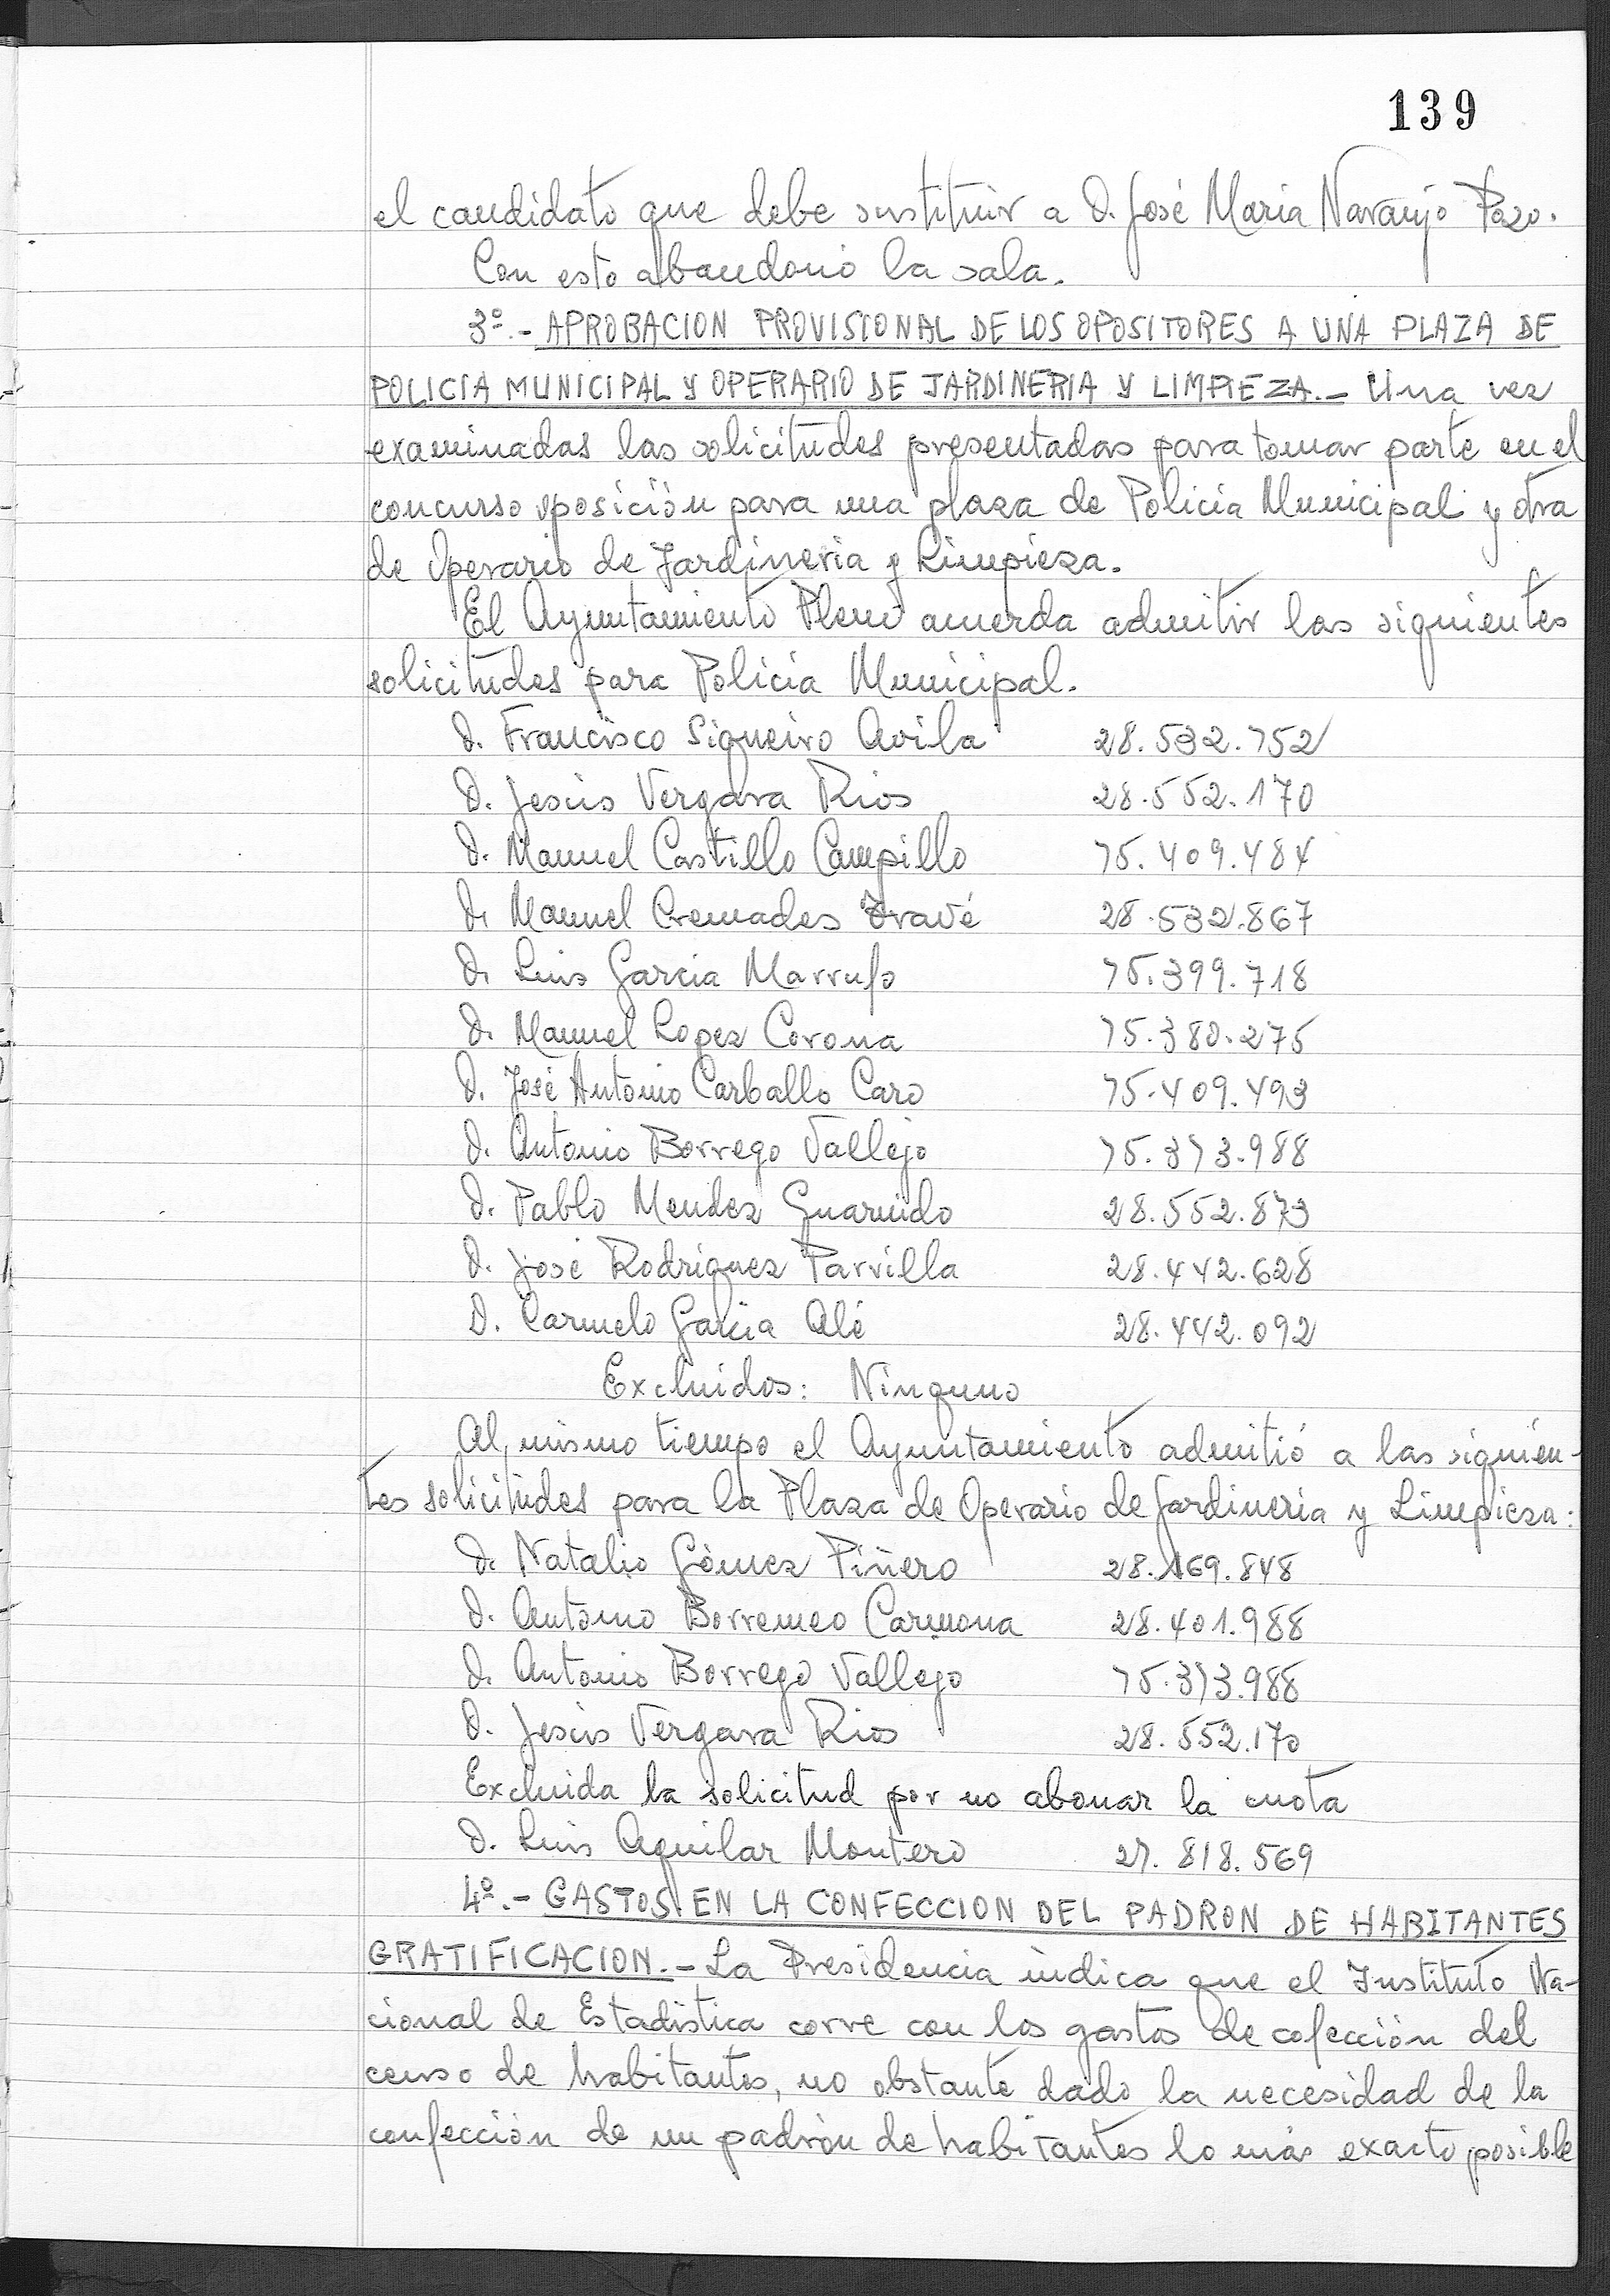 139
el candidato que debe sustituir a D. José Maria Naranjo Pazo.
Con esto abandonó la sala.
3º.- APROBACION PROVISIONAL DE LOS OPOSITORES A UNA PLAZA DE
POLICIA MUNICIPAL Y OPERARIO DE JARDINERIA Y LIMPIEZA.- Una vez
examinadas las solicitudes presentadas para tomar parte en el
concurso oposición para una plaza de Policia Municipal y otra
de Operario de Jardineria y Limpieza.
El Ayuntamiento Pleno acuerda admitir las siguientes
solicitudes para Policia Municipal.
D. Francisco Siqueiro Avila 28.532.752
D. Jesús Vergara Rios 28.552.170
D. Manuel Castillo Campillo 75.409.484
D. Manuel Cremades Travé 28.532.867
D. Luis Garcia Marrufo 75.399.718
D. Manuel Lopez Corona 75.380.275
D. José Antonio Carballo Caro 75.409.493
D. Antonio Borrego Vallejo 75.373.988
D. Pablo Mendez Guarnido 28.552.873
D. José Rodriguez Parrilla 28.442.628
D. Carmelo Garcia Alé 28.442.092
Excluidos: Ninguno
Al mismo tiempo el Ayuntamiento admitió a las siguien-
tes solicitudes para la Plaza de Operario de Jardineria y Limpieza:
D. Natalio Gómez Piñero 28.169.848
D. Antonio Borremeo Carmona 28.401.988
D. Antonio Borrego Vallejo 75.373.988
D. Jesús Vergara Rios 28.552.170
Excluida la solicitud por no abonar la cuota
D. Luis Aguilar Montero 27.818.569
4º.- GASTOS EN LA CONFECCION DEL PADRON DE HABITANTES
GRATIFICACION.- La Presidencia indica que el Instituto Na-
cional de Estadistica corre con los gastos de cofección del
censo de habitantes, no obstante dado la necesidad de la
confección de un padrón de habitantes lo más exacto posible